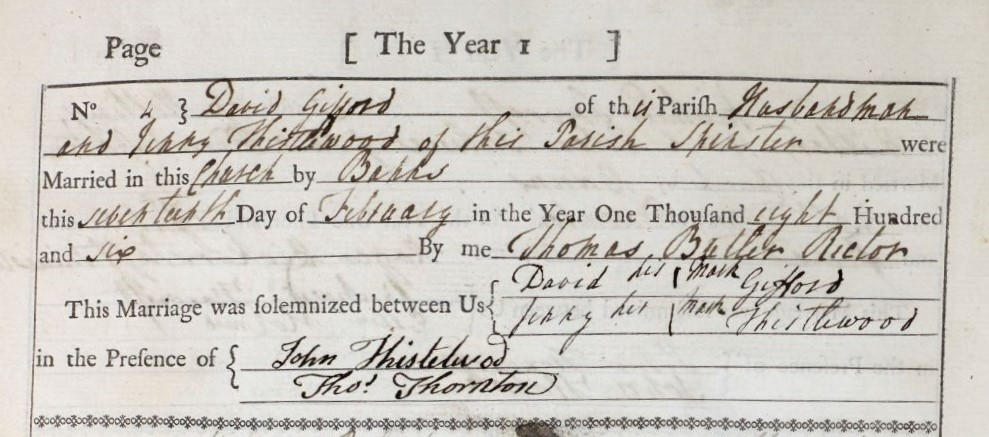 Page [ The Year 1 ]
No 4 } David Gifford of this Parish Husbandman
and Jenny Thistlewood of this Parish Spinster were
Married in this Church by Banns
this seventeenth Day of February in the Year One Thousand eight Hundred
and six By me Thomas Butler Rector
This Marriage was solemnized between Us { David his mark Gifford
Jenny her mark Thistlewood
in the Presence of { John Thistelwod
Thos Thornton